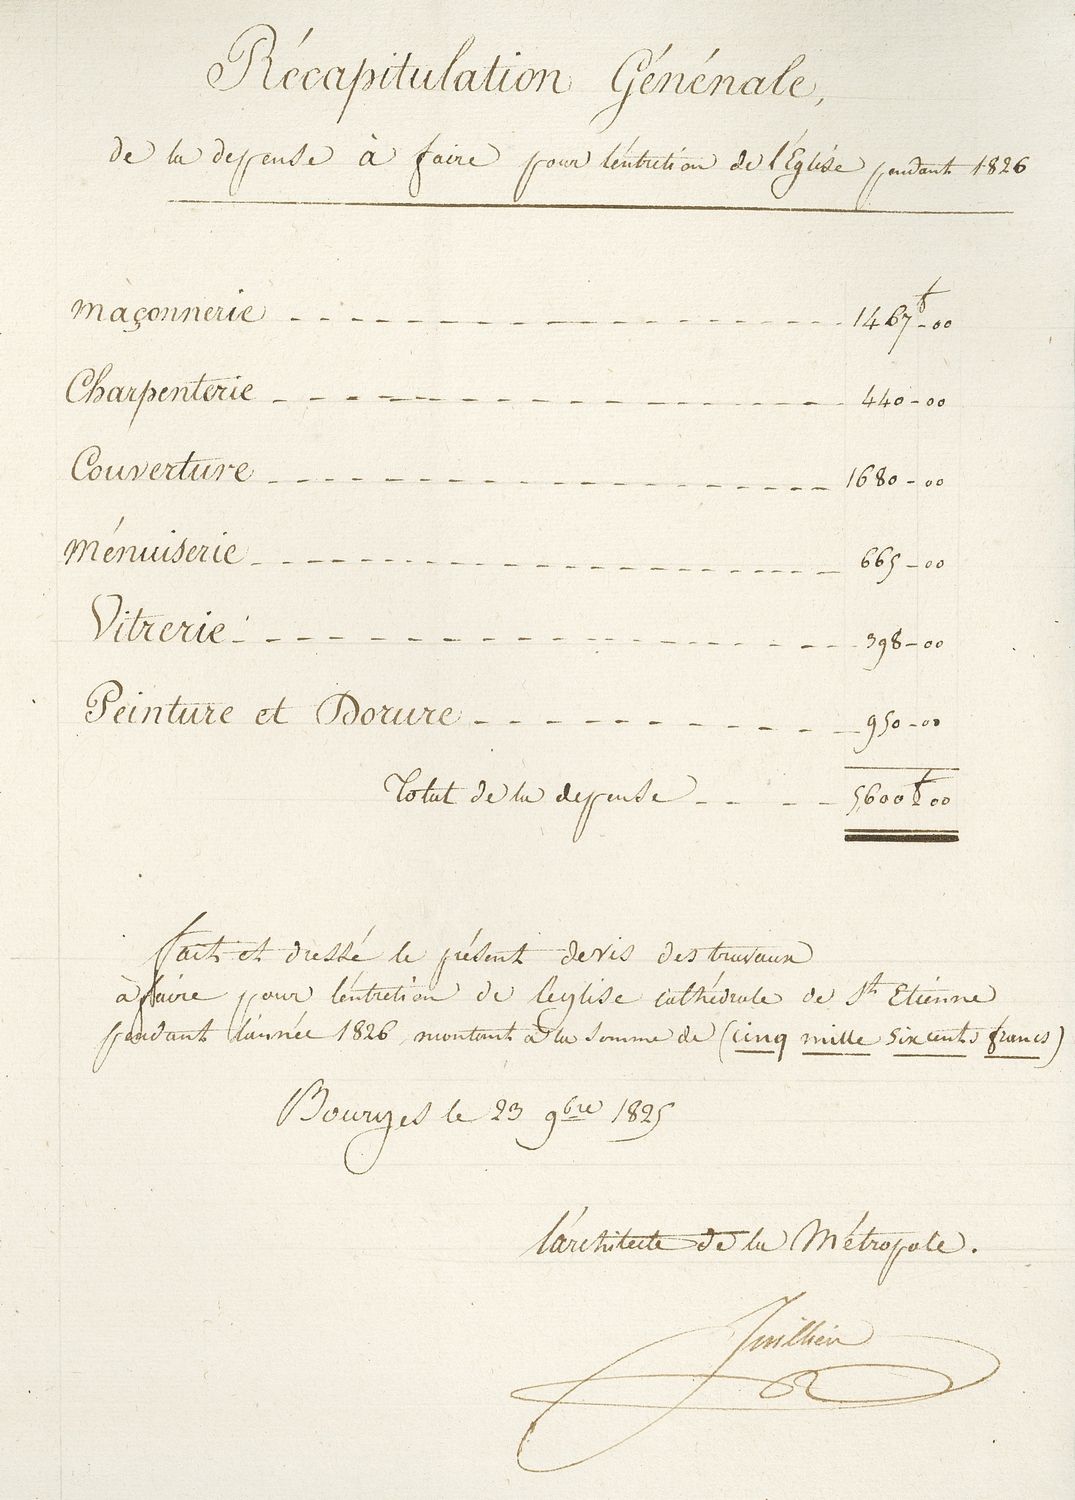 Récapitulation Génénale,
de la depense à faire pour léntretion de l'Église pendant 1826
maçonnerie - - - - 1467f - 00
Charpenterie - - - - 440 - 00
Couverture - - - - 1680 - 00
Ménuiserie - - - - 665 - 00
Vitrerie - - - - 398 - 00
Peinture et Dorure - - - - 950 - 00
Total de la depense - - - - 5,600f 00
fait et dressé le présent devis des travaux
à faire pour léntretion de leglise cathédrale de St Etienne
pendant lánnée 1826, montant à la somme de (cinq mille six cents francs)
Bourges le 23 9bre 1825
lárchitecte de la Métropole.
Juillien